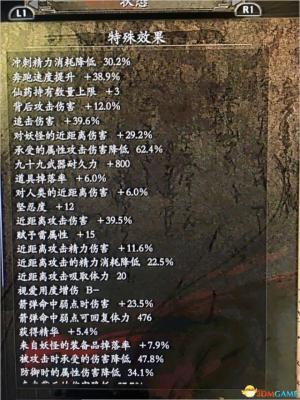 状态
L1
R1
特殊效果
冲刺精力消耗降低 30.2%
奔跑速度提升 +38.9%
仙药持有数量上限 +3
背后攻击伤害 +12.0%
追击伤害 +39.6%
对妖怪的近距离伤害 +29.2%
承受的属性攻击伤害降低 62.4%
九十九武器耐久力 +800
道具掉落率 +6.0%
对人类的近距离伤害 +6.0%
坚忍度 +12
近距离攻击伤害 +39.5%
赋予雷属性 +15
近距离攻击精力伤害 +11.6%
近距离攻击的精力消耗降低 22.5%
近距离攻击吸取体力 20
视爱用度增伤 B-
箭弹命中弱点时伤害 +23.5%
箭弹命中弱点可回复体力 476
获得精华 +5.4%
来自妖怪的装备品掉落率 +7.9%
被攻击时承受的伤害降低 47.8%
防御时的属性伤害降低 34.1%
3DMGAME